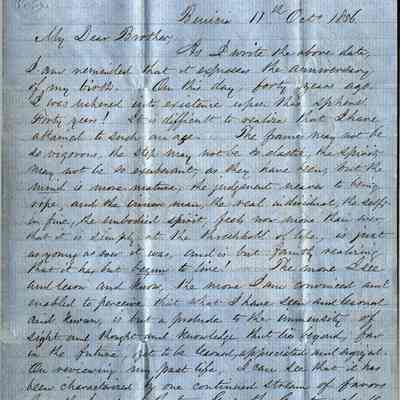 Benicia 11th Oct 1856
My Dear Brother
As I write the above date,
I am reminded that it expresses the anniversary
of my birth. On this day, forty years ago
I was ushered into existence upon this sphere!
Forty years! It is difficult to realize that I have
attained to such an age. The frame may not be
so vigorous, the step may not be so elastic, the spirits
may not be so exuberant, as they have been, but the
mind is more mature, the judgement nearer to being
ripe, and the inner man, the real individual, the self
in fine, the embodied spirit, feels now more than ever
that it is simply at the threshold of life, is just
as young as ever it was, and is but faintly realizing
that it has but begun to live! The more I see
and learn and know, the more I am convinced and
enabled to perceive that what I have seen and learned
and known, is but a prelude to the immensity of
sight and thought and knowledge that lies beyond, far
in the future, yet to be learned, appreciated and enjoyed.
On reviewing my past life, I can see that it has
been characterized by one continued stream of favors